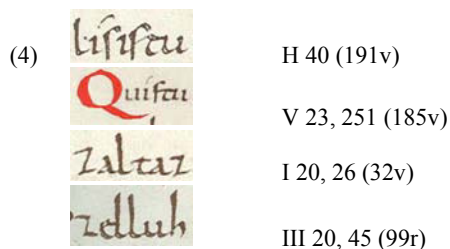 (4) líſiſtu H 40 (191v)
Quiſtu V 23, 251 (185v)
zaltaz I 20, 26 (32v)
zelluh III 20, 45 (99r)